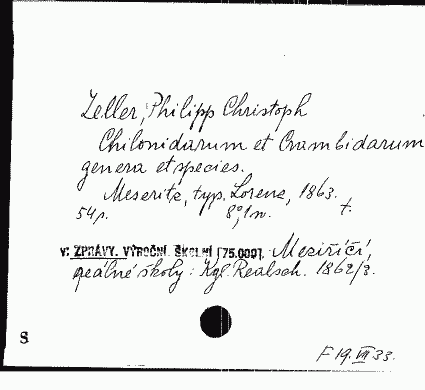 Zeller, Philipp Christoph
Chilonidarum et Crambidarum
genera et species.
Meseritz, typ. Lorenz, 1863.
54p. 8°, 1n. t.
v: ZPRÁVY. VÝROČNÍ. ŠKOLNÍ [75.000]. Meziříčí,
reálné školy: Kgl. Realsch. 1862/3.
8
F 19. VII 33.